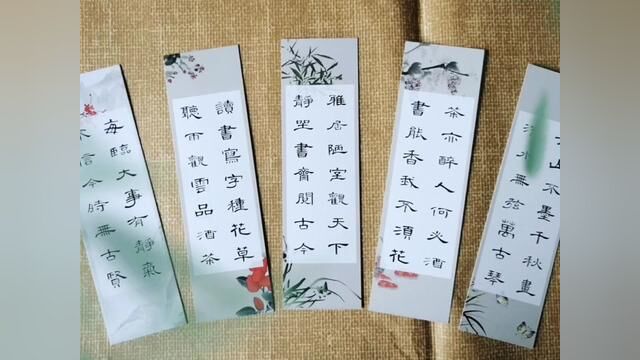 每臨大事有靜氣
不信今時無古賢
讀書寫字種花草
聽雨觀雲品酒茶
雅居陋室觀天下
靜坐書齋閱古今
茶亦醉人何必酒
書能香我不須花
山不墨千秋畫
水無弦萬古琴